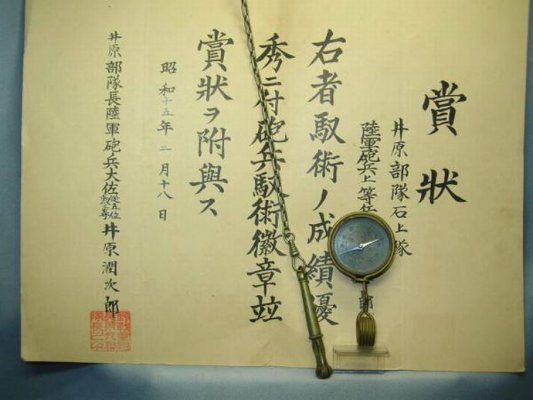 賞状
井原部隊石上隊
陸軍砲兵上等
郎
右者馭術ノ成績優
秀ニ付砲兵馭術徽章竝
賞状ヲ附與ス
昭和十五年二月十八日
井原部隊長陸軍砲兵大佐
井原潤次郎